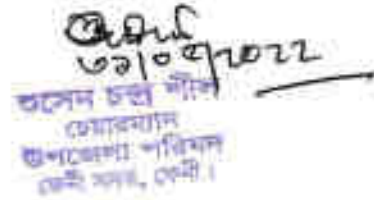 ৩১|০৫|২০২২
শুসেন চন্দ্র শীল
চেয়ারম্যান
উপজেলা পরিষদ
ফেনী সদর, ফেনী।